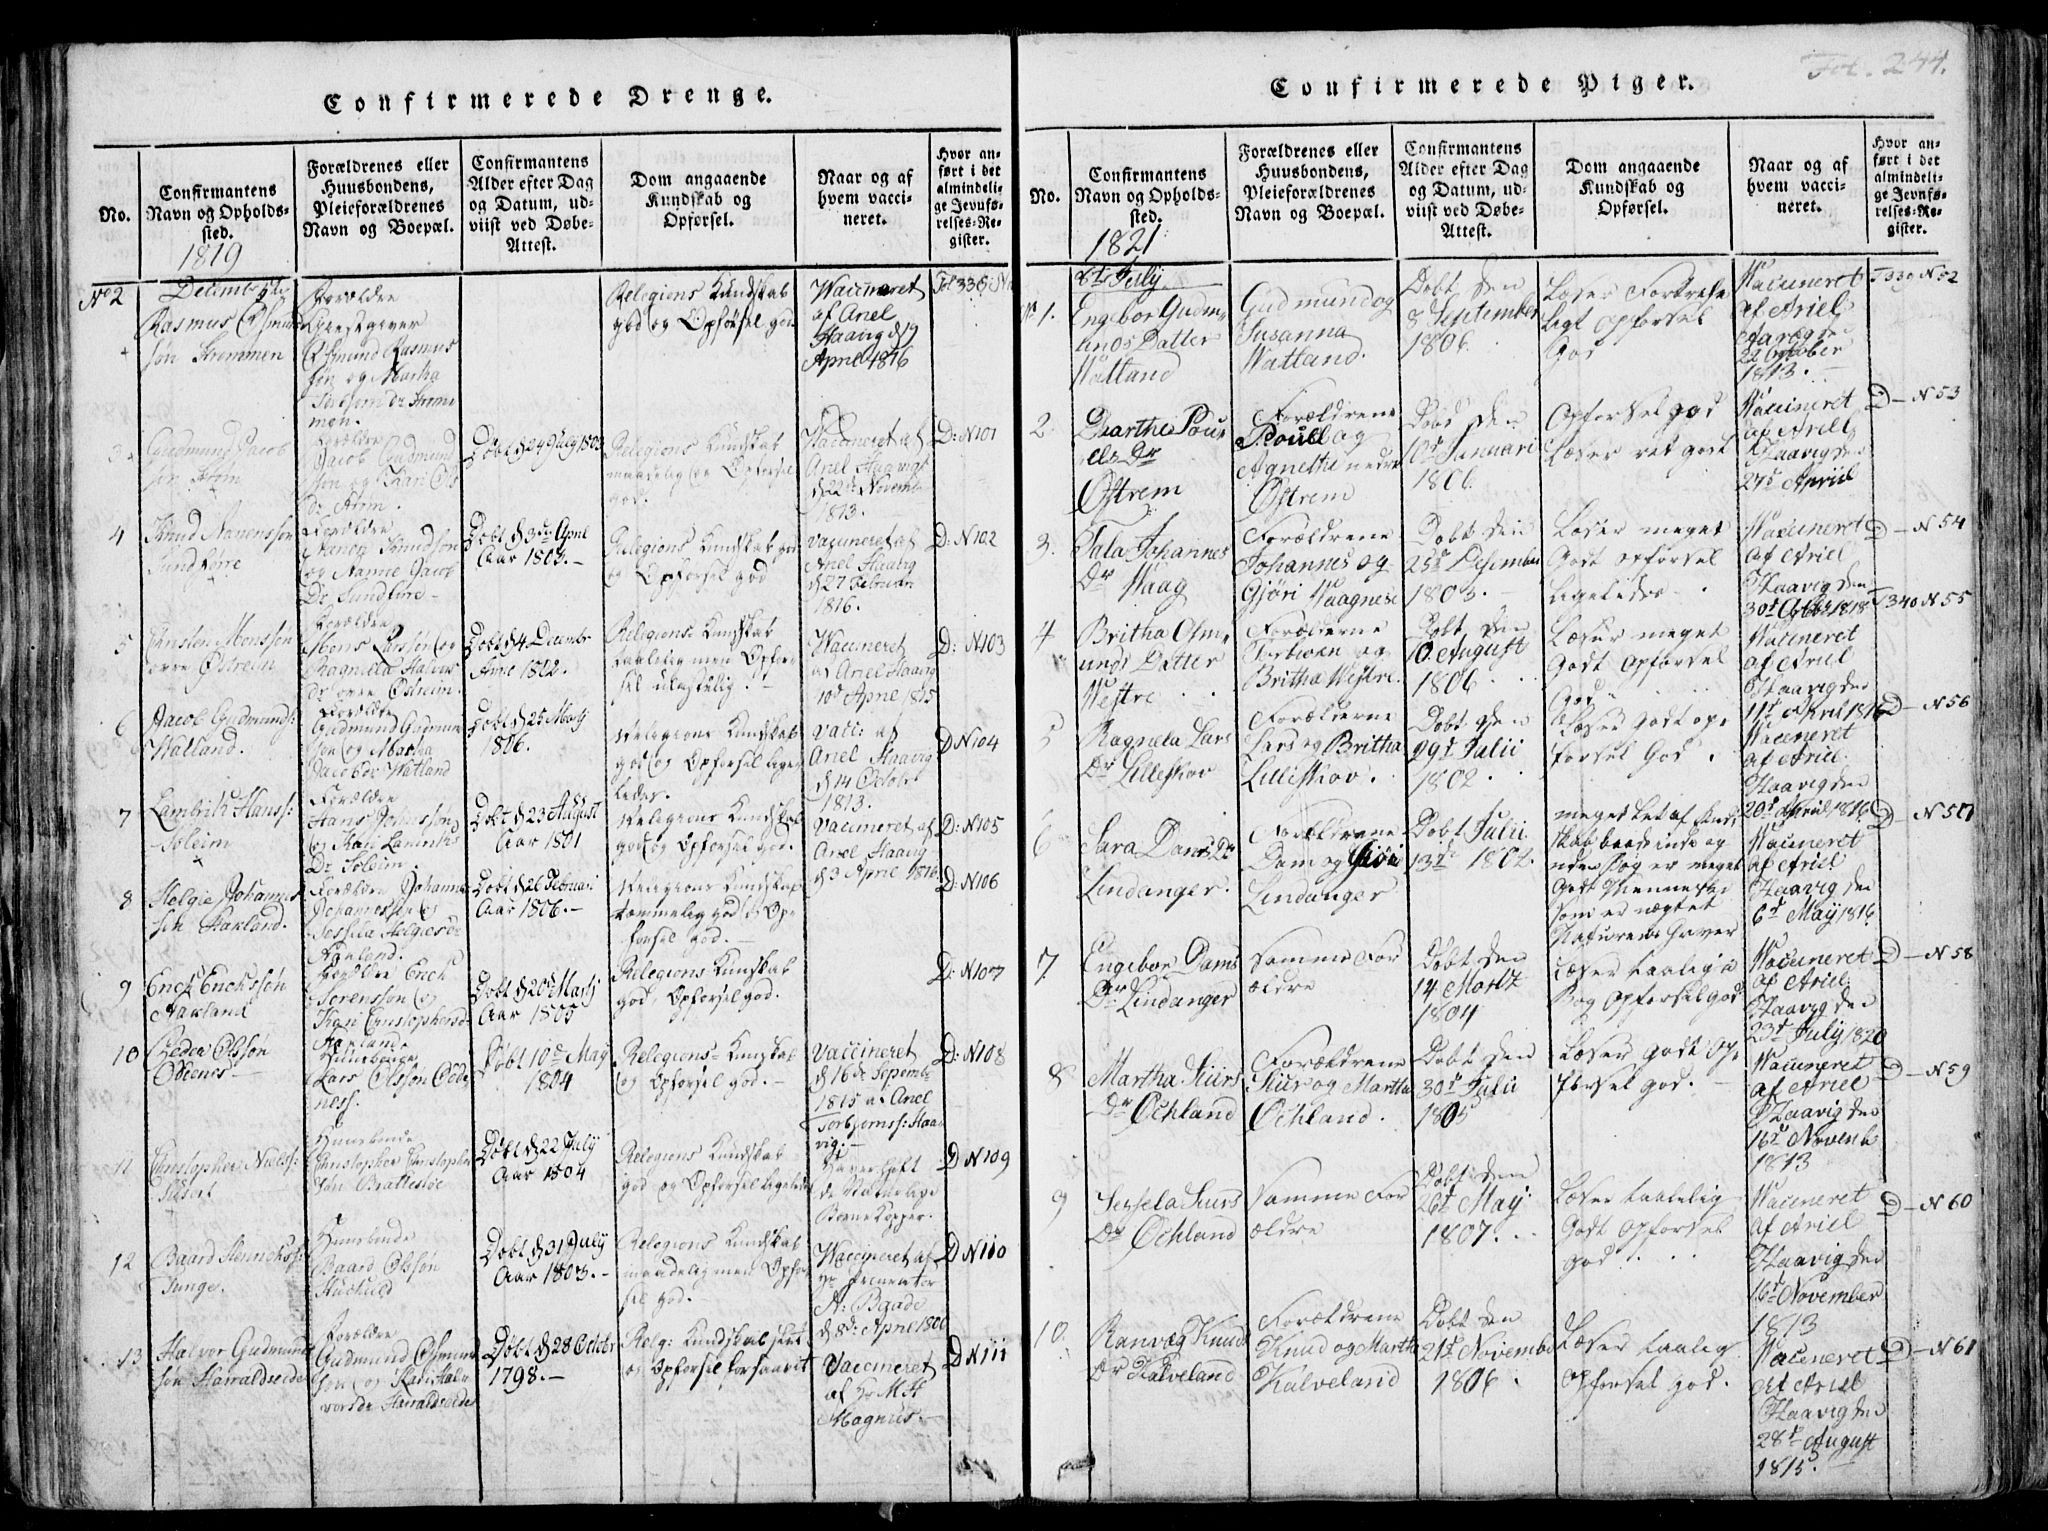 Confirmerede Drenge.
No.
Confirmantens
Navn og Opholds-
sted.
1819
Forældrenes eller
Huusbondens,
Pleieforældrenes
Navn og Boepæl.
Confirmantens
Alder efter Dag
og Datum, ud-
viist ved Døbe-
Attest.
Dom angaaende
Kundskab og
Opførsel.
Naar og af
hvem vacci-
neret.
Hvor an-
ført i det
almindeli-
ge Jevnfø-
relses-Re-
gister.
No 2
Rasmus
søn Strømmen
Forældre
Giestgiver
Osmund Rasmus
søn og Martha
Religions Kundskab
god og Opførsel god
Waccineret
af Ariel
Haavig d 19
April 1816
3
Gudmund Jacob
søn Strøm
Forældre
Jacob Gudmund
søn og Kari Ols
Dr Strøm.
Døbt d 24 July 1803
Religions Kundskab
maadelig og Opførsel
god.
Waccineret af
Ariel Haavig
d 22de Novemb
1813.
D: N 101
4
Knud
Sundføre
Forældre
Knudsøn
og Jacob
Dr Sundføre
Døbt d 3de April
Aar 1803.
Religions Kundskab god
og Opførsel god
vaccineret af
Ariel Haavig
d 27 Februar
1816.
D: N 102
5
Monssøn
øvre Østrem
Forældre
Mons Larssøn og
Ragnilla Halvors
Dr øvre Østrem.
Døbt d 4 Decembr
1802.
Religions Kundskab
taalelig men Opfør-
sel ulastelig.
Waccineret
af Ariel Haavig
10de April 1815
D: N 103
6
Jacob Gudmunds:
Watland.
Forældre
Gudmund Gudmun
søn og Martha
Jacobdr Watland
Døbt d 25 Martj
1806.
Religions Kundskab
god og Opførsel lige-
ledes.
vacc: af
Ariel Haavig
d 14 October
1813.
D N 104
7
Lambrik Hanss:
Soleim
Forældre
Hans
og Kari
Dr Soleim.
Døbt d 23 August
Aar 1801
Religions Kundskab
god og Opførsel god.
Vaccineret af
Ariel Haavig
d 3 April 1816
D: N 105
8
Helgie Johannes
søn Havland.
Forældre Johannes
Johannessøn og
Døbt d 26 Februari
Aar 1806.
Religions Kundskab
temmelig god d Op-
førsel god.
D: N 106
9
Erich Erichssøn
Forældre Erich
Sørenssøn og
Døbt d 20de Martj
Aar 1805
Religions Kundskab
god, Opførsel god.
D: N 107
10
Peder Olssøn
Ødenes
Huusbonde
Lars Olssøn Øde
ness.
Døbt 10de May
1804
Religions Kundskab
og Opførsel god.
Vaccineret
d 16de Septemb
1815 af Ariel
Torbjørnss: Haa
vig.
D: N 108
11
Christopher
Huusbonde
Christopher Christopher
søn Brattestøe
Døbt d 22 July
Aar 1804
Religions Kundskab
god og Opførsel ligeledes
Haver haft
de Naturlige
Børne Kopper.
D N 109
12
Baard
Tunge.
Huusbonde
Baard Olssøn
Døbt d 31 July
Aar 1803.
Religions Kundskab
maadelig men Opfør
sel god.
Waccineret af
d 8de April 1800
D N 110
13
Halvor Gudmund
søn Haraldseide
Forældre
Gudmund Osmun
søn og Kari Hal
vorsdr Haraldseide
Døbt d 28 Octobr
1798.
Relig: Kundskab slet
og Opførsel forsaavit
Vaccineret
af Hr M H
Magnus.
D N 111
Confirmerede Piger.
Fol. 244.
No.
Confirmantens
Navn og Opholds-
sted.
1821
Forældrenes eller
Huusbondens,
Pleieforældrenes
Navn og Boepæl.
Confirmantens
Alder efter Dag
og Datum, ud-
viist ved Døbe-
Attest.
Dom angaaende
Kundskab og
Opførsel.
Naar og af
hvem vacci-
neret.
Hvor an-
ført i det
almindeli-
ge Jevnfø-
relses-Re-
gister.
8de July
No 1.
Engebor Gudm-
unds Datter
Watland
Gudmund og
Susanna
Watland.
Døbt den
8 September
1806.
Læser Fortrefe
ligt Opførsel
God
Waccineret
af Ariel
Haavig den
22 October
1813.
F 339 N 52
2
Barthe Pou-
els Dr
Østrem
Forældrene
Pouel og
Agnethe nedre
Østrem
Døbt den
10de Januari
1806
Opførsel god
Læser ret godt
Waccineret
af Ariel
Haavig den
27de April
D - N 53
3.
Tala Johannes
Dr Waag
Forældrene
Johannes og
Gjøri Waagnese
Døbt den
25de Desember
1803.
Læser meget
Godt Opførsel
Ligeledes
Waccineret
af Ariel
Haavig den
30de Octbr 1818
D - N 54
4
Britha Osm-
unds Datter
Westre
Forælderne
Britha Westre.
Døbt den
10. August
1806
Læser meget
Godt Opførsel
God
Waccineret
af Ariel
Haavig den
11de April 1816
F 340 N 55
5
Ragnela Lars
Dr Lilleskov
Forælderne
Lars og Britha
Lilleskov.
Døbt den
29de Julii
1802
Læser Godt op-
førsel God.
Waccineret
af Ariel
Haavig den
20de April 1816
D - N 56
6
Sara Dams Dr
Lindanger.
Forældrene
Dam og Giøri
Lindanger
Døbt Julii
13de 1802.
meget let af Kund
skab baade inde og
uden Bog er meget
Godt Menneske
som er nægtet
Naturens Gaver
Waccineret
af Ariel
Haavig den
6de May 1816
D - N 57
7
Engebor Dams
Dr Lindanger
Samme For
ældre
Døbt den
14 Martz
1804
Læser taalig i
Bog Opførsel god
Waccineret
af Ariel
Haavig den
23de July 1820
D - N 58
8
Martha Siurs
Dr Øchland
Forældrene
Siur og Martha
Øchland.
Døbt den
30de Julii
1805
Læser Godt Op-
førsel god.
Waccineret
af Ariel
Haavig den
16de Novemb
1813
D - N 59
9
Sessela Siurs
Dr Øchland
Samme For
ældre
Døbt den
26de May
1807.
Læser taalelig
Godt Opførsel
god
Waccineret
af Ariel
Haavig den
16de November
1813
D - N 60
10.
Ranveg Knuds
Dr Kalveland
Forældrene
Knud og Martha
Kalveland
Døbt den
21de Novembr
1806.
Læser taalig
Opførsel god.
Waccineret
af Ariel
Haavig den
28de August
1815.
D - N 61